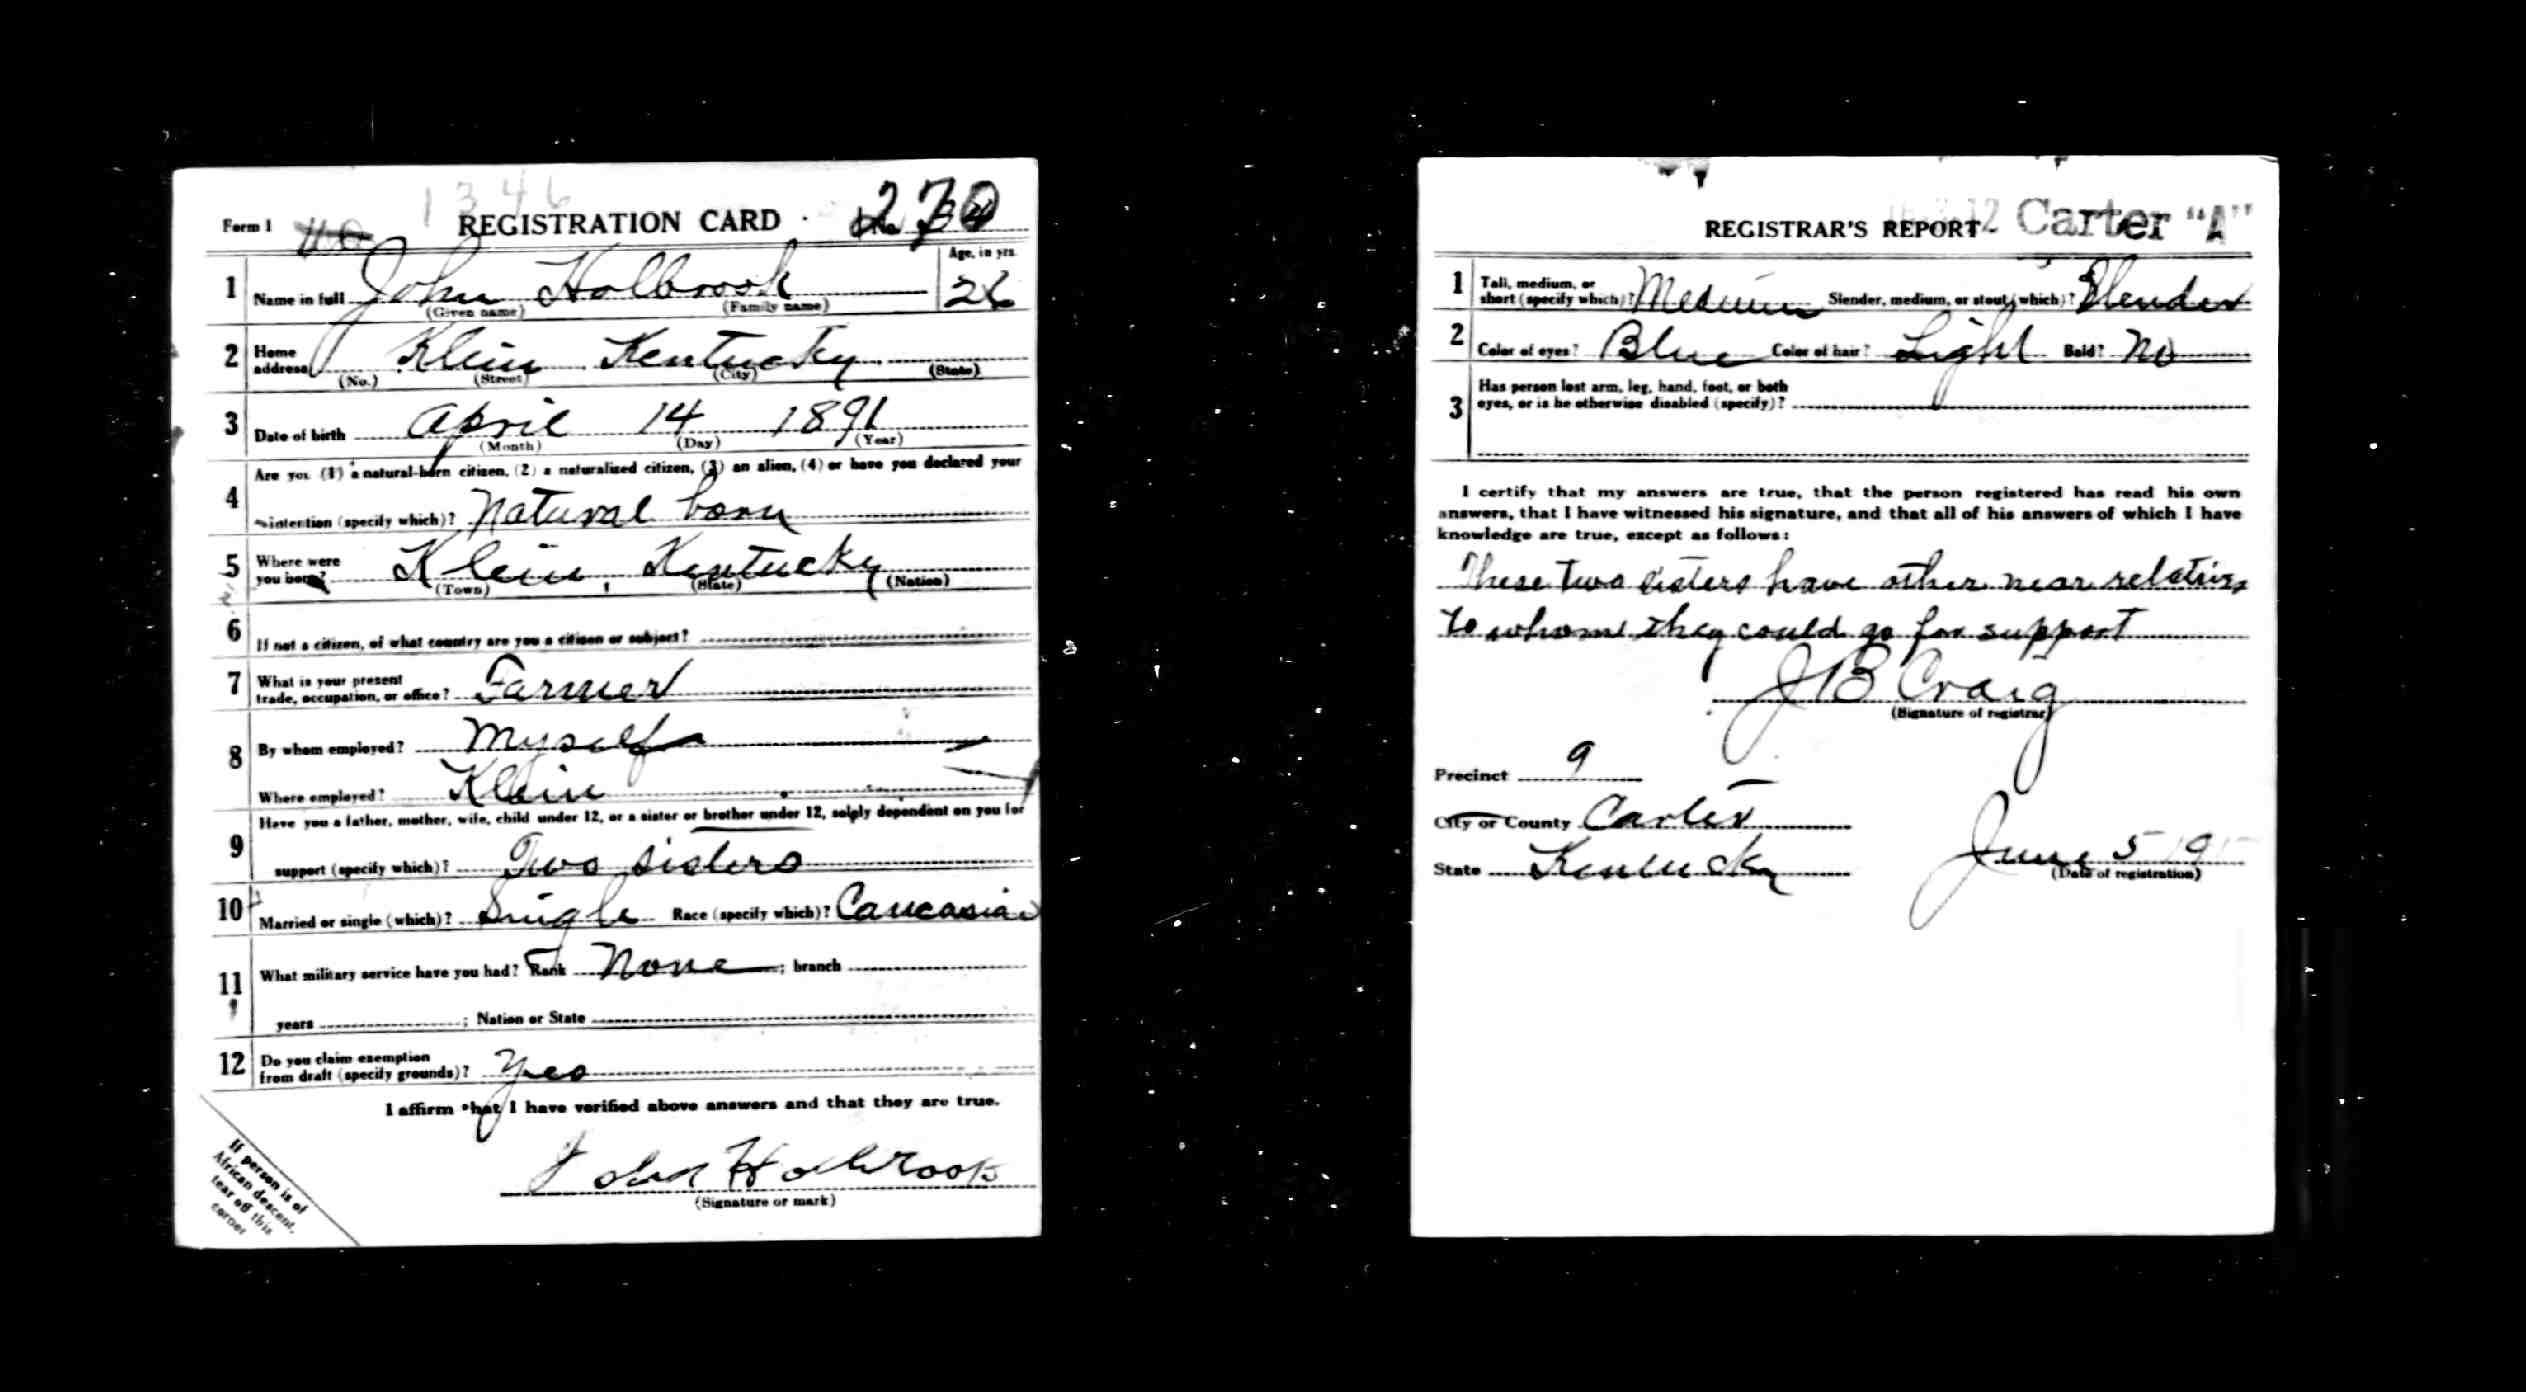 1346
Form 1 REGISTRATION CARD No. 270
1 Name in full John Holbrook Age, in yrs. 26
(Given name) (Family name)
2 Home address Klein Kentucky
(No.) (Street) (City) (State)
3 Date of birth April 14 1891
(Month) (Day) (Year)
Are you (1) a natural-born citizen, (2) a naturalized citizen, (3) an alien, (4) or have you declared your
4 intention (specify which)? Natural born
5 Where were you born? Klein Kentucky
(Town) (State) (Nation)
6 If not a citizen, of what country are you a citizen or subject?
7 What is your present
trade, occupation, or office? Farmer
8 By whom employed? Myself
Where employed? Klein
9 Have you a father, mother, wife, child under 12, or a sister or brother under 12, solely dependent on you for
support (specify which)? Two sisters
10 Married or single (which)? Single Race (specify which)? Caucasian
11 What military service have you had? Rank None ; branch
years ; Nation or State
12 Do you claim exemption
from draft (specify grounds)? Yes
I affirm that I have verified above answers and that they are true.
John Holbrook
(Signature or mark)
If person is of
African descent,
tear off this
corner
REGISTRAR'S REPORT Carter "A"
1 Tall, medium, or
short (specify which)? Medium Slender, medium, or stout (which)? Slender
2 Color of eyes? Blue Color of hair? Light Bald? No
3 Has person lost arm, leg, hand, foot, or both
eyes, or is he otherwise disabled (specify)?
I certify that my answers are true, that the person registered has read his own
answers, that I have witnessed his signature, and that all of his answers of which I have
knowledge are true, except as follows:
These two sisters have other near relatives
to whom they could go for support
J B Craig
(Signature of registrar)
Precinct 9
City or County Carter
State Kentucky June 5 191
(Date of registration)